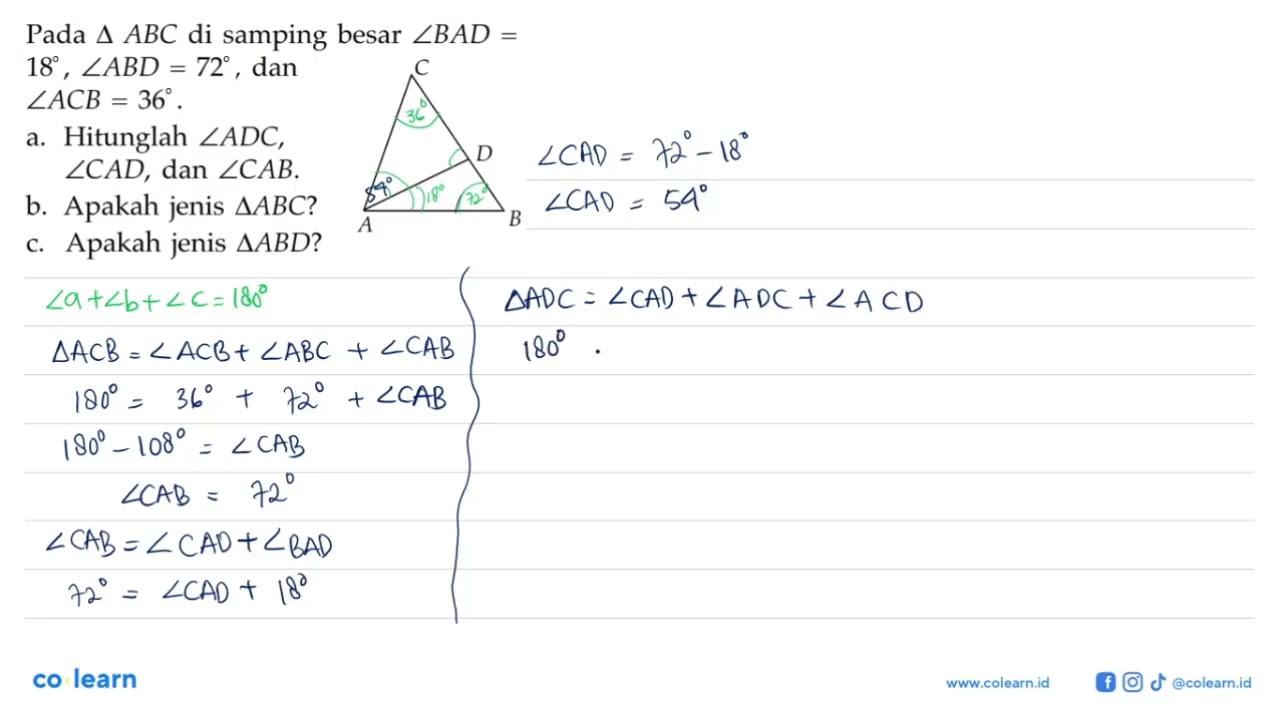 Pada Δ ABC di samping besar ∠BAD =
18°, ∠ABD = 72°, dan
∠ACB = 36°.
a. Hitunglah ∠ADC,
∠CAD, dan ∠CAB.
b. Apakah jenis ΔABC?
c. Apakah jenis ΔABD?
C
36°
D
54°
18°
72°
A
B
∠CAD = 72° - 18°
∠CAD = 54°
∠a + ∠b + ∠c = 180°
ΔACB = ∠ACB + ∠ABC + ∠CAB
180° = 36° + 72° + ∠CAB
180° - 108° = ∠CAB
∠CAB = 72°
∠CAB = ∠CAD + ∠BAD
72° = ∠CAD + 18°
ΔADC = ∠CAD + ∠ADC + ∠ACD
180° .
co learn
www.colearn.id
@colearn.id